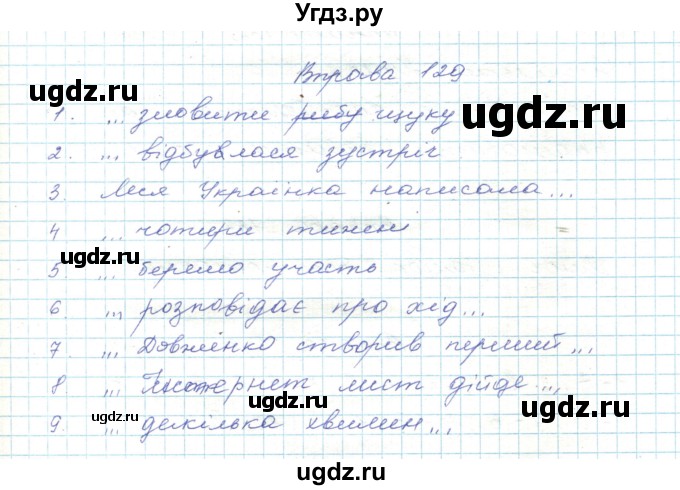 Угдз.ру
Вправа 129
1. ... зловити рибу щуку
2. ... відбувалася зустріч
3. Леся Українка написала...
4 ... чотири тижні
5 ... беремо участь
6 ... розповідає про хід...
7 ... Довженко створив перший...
8 ... Інтернет лист дійде...
9. ... декілька хвилин...
ugdz.ru
ugdz.ru
ugdz.ru
ugdz.ru
ugdz.ru
ugdz.ru
ugdz.ru
ugdz.ru
ugdz.ru
ugdz.ru